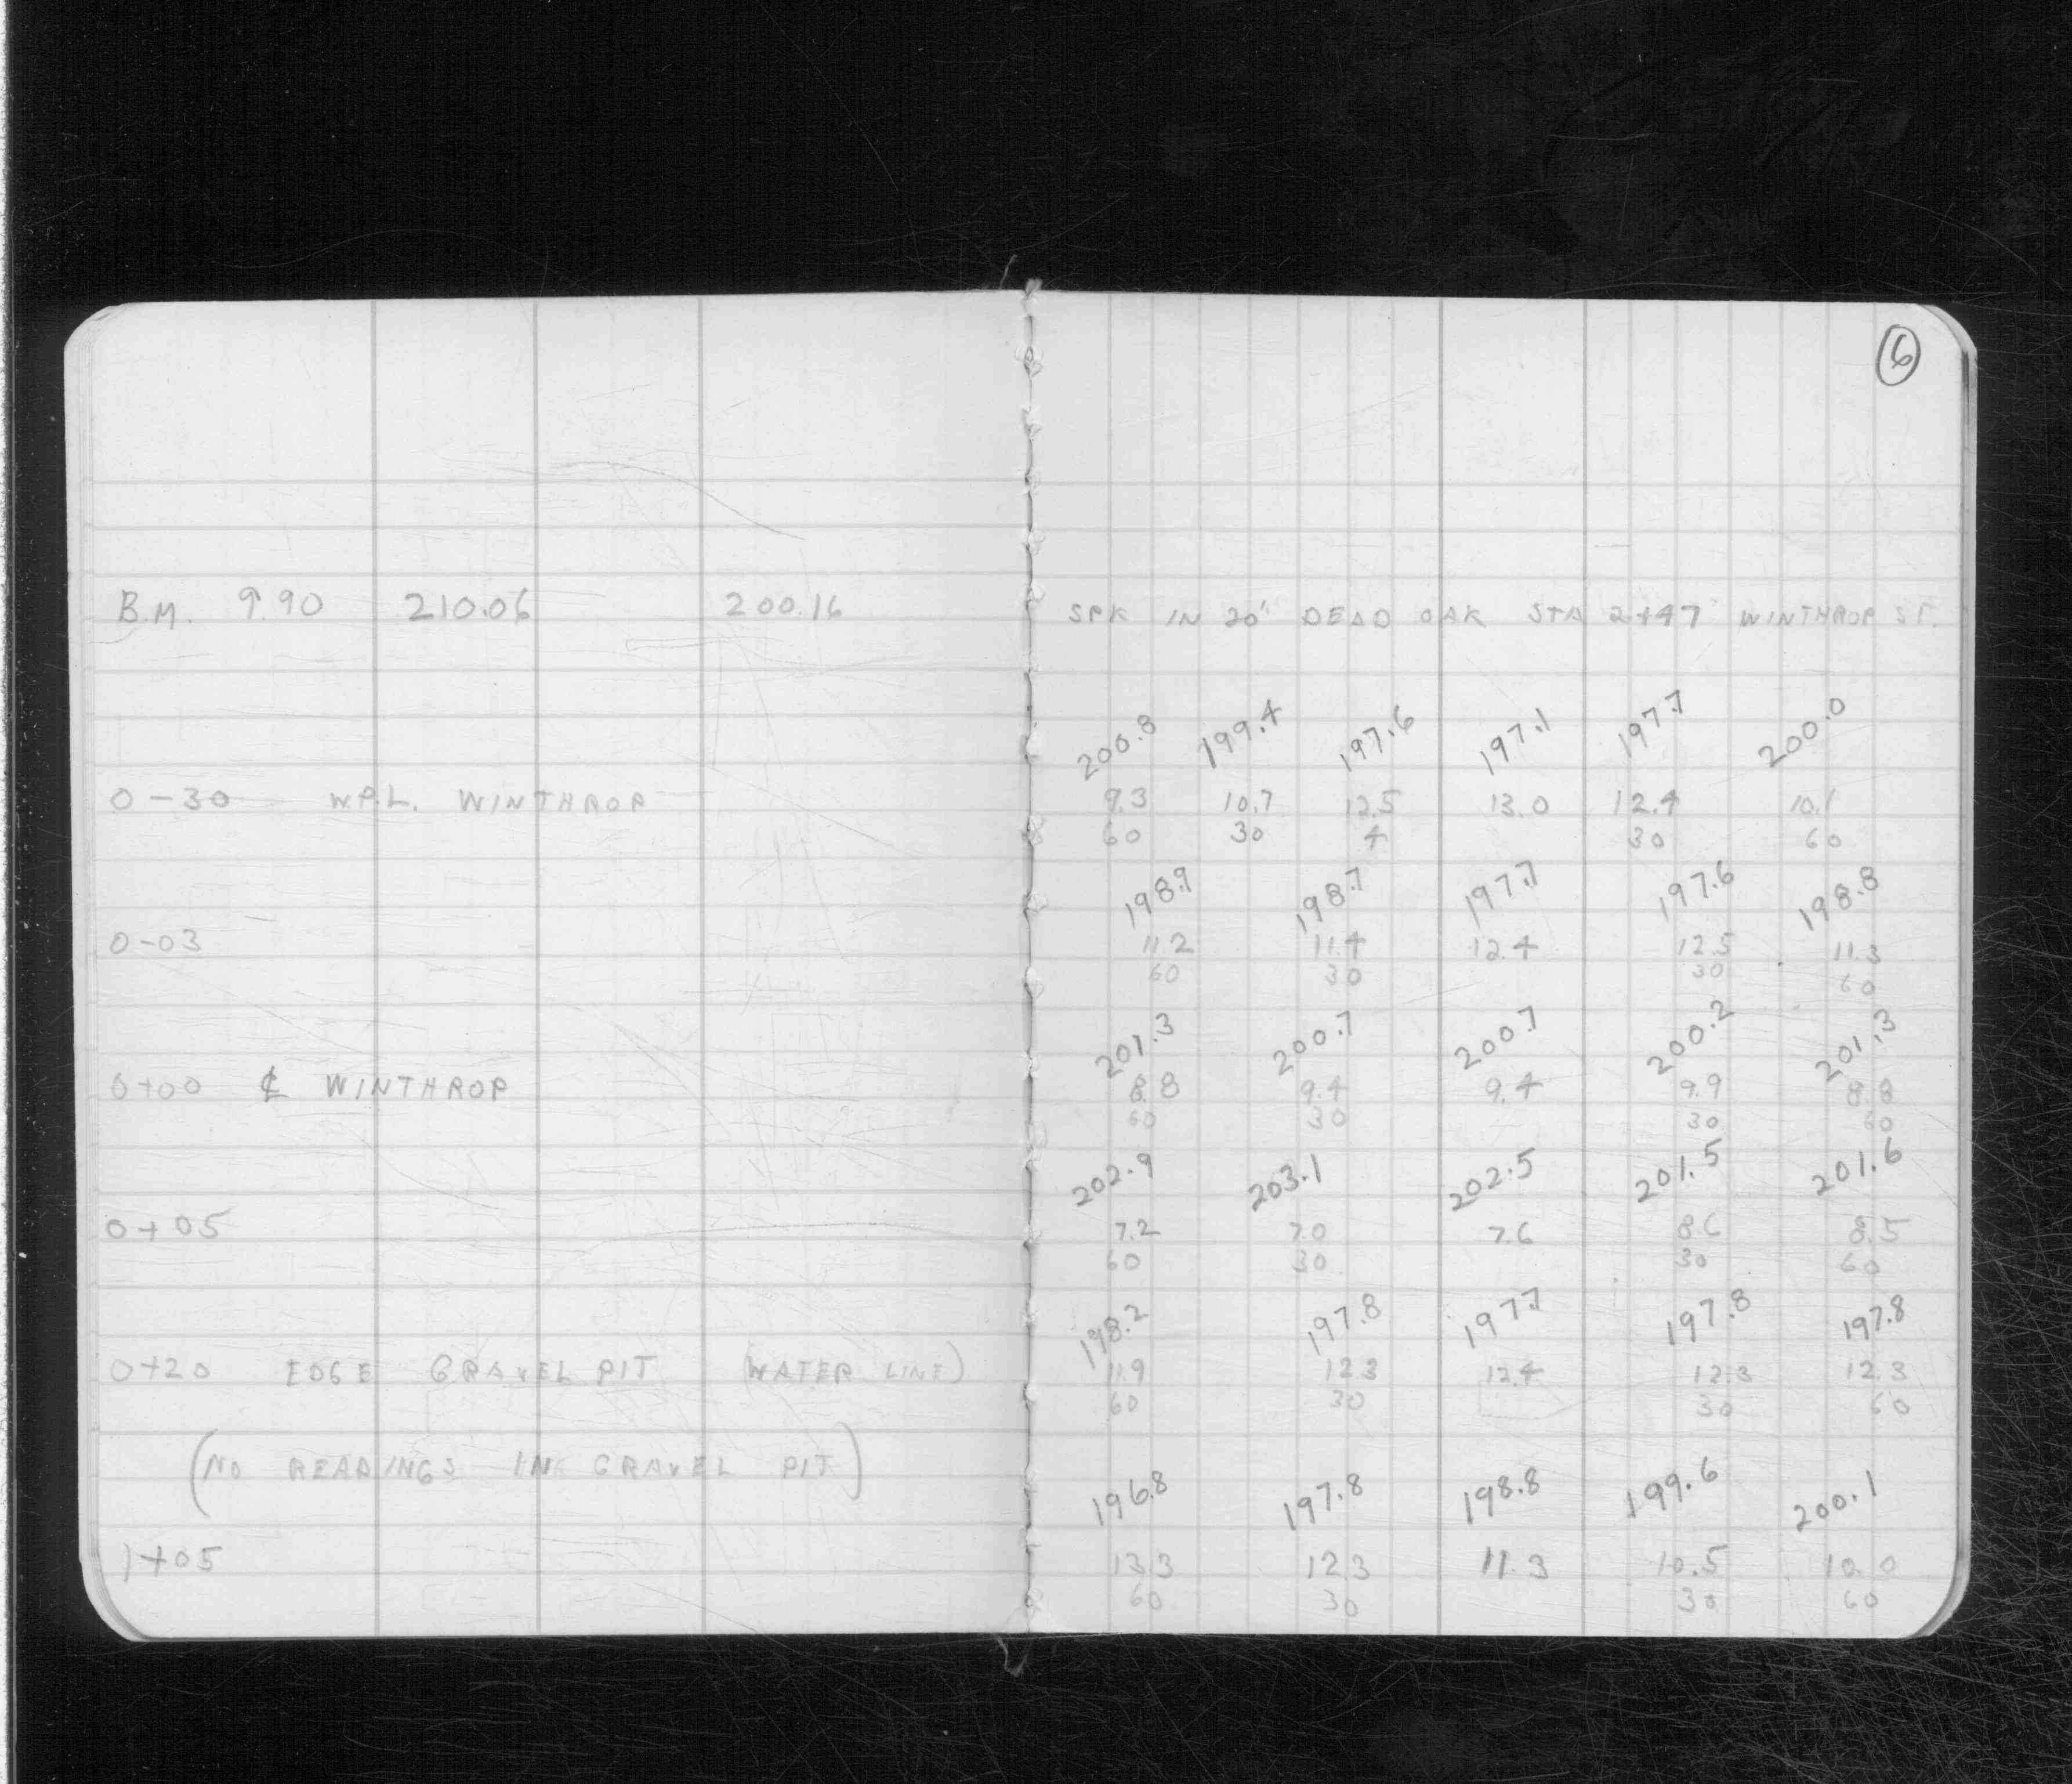 6
B.M. 9.90 210.06 200.16 SPK IN 20" DEAD OAK STA 2+47 WINTHROP ST.
200.8 199.4 197.6 197.1 197.7 200.0
0-30 W.P.L. WINTHROP 9.3 10.7 12.5 13.0 12.4 10.1
60 30 4 30 60
198.9 198.7 197.7 197.6 198.8
0-03 11.2 11.4 12.4 12.5 11.3
60 30 30 60
201.3 200.7 200.7 200.2 201.3
0+00 ℄ WINTHROP 8.8 9.4 9.4 9.9 8.8
60 30 30 60
202.9 203.1 202.5 201.5 201.6
0+05 7.2 7.0 7.6 8.6 8.5
60 30 30 60
198.2 197.8 197.7 197.8 197.8
0+20 EDGE GRAVEL PIT (WATER LINE) 11.9 12.3 12.4 12.3 12.3
60 30 30 60
(NO READINGS IN GRAVEL PIT)
196.8 197.8 198.8 199.6 200.1
1+05 13.3 12.3 11.3 10.5 10.0
60 30 30 60